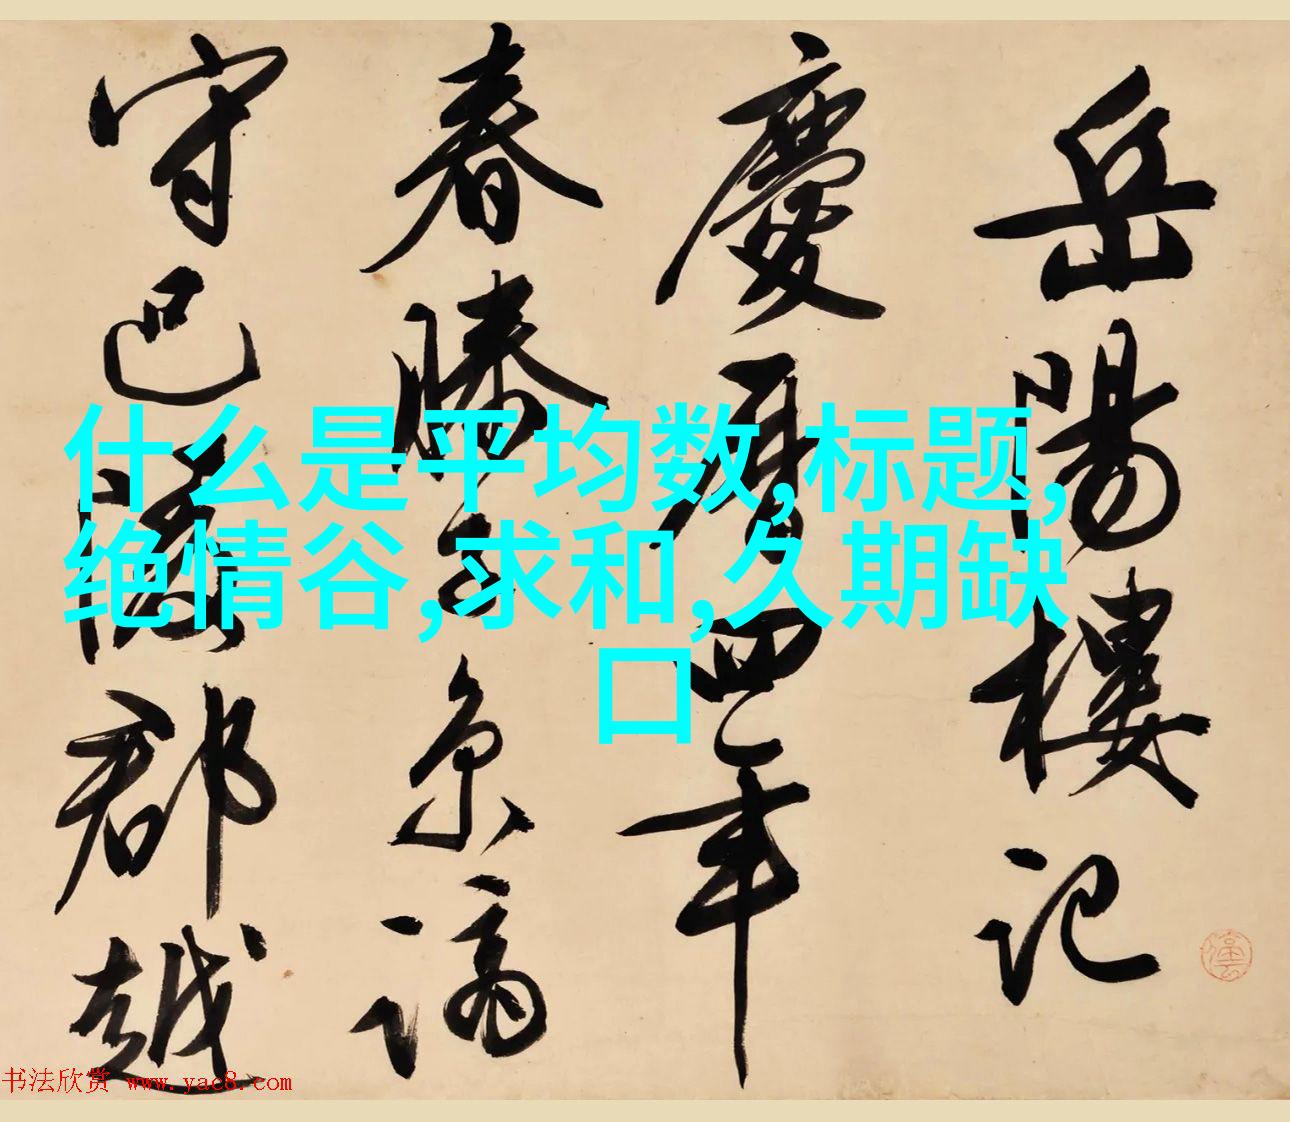 岳陽樓記
慶曆四年
春滕子京謫
守巴陵郡越
什么是平均数,标题,
绝情谷,求和,久期缺
口
书法欣赏 www.yac8.com